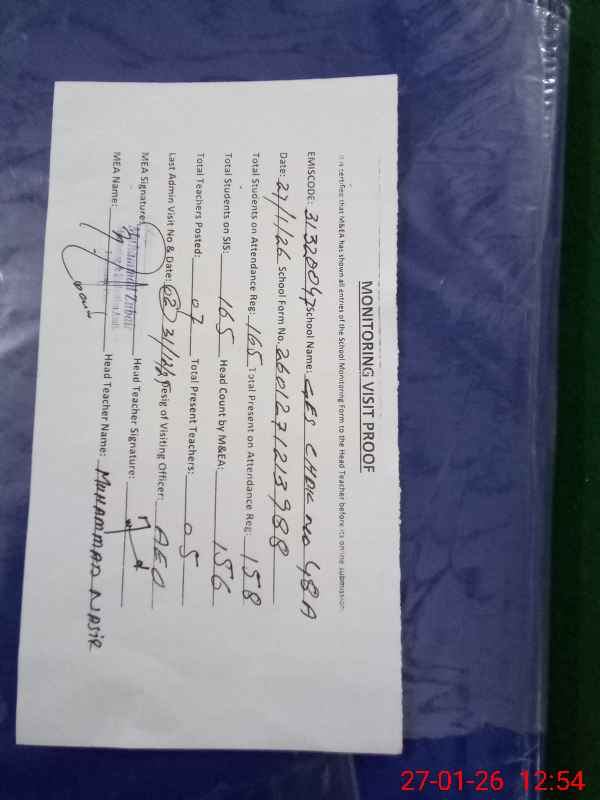 MONITORING VISIT PROOF
It is certified that M&EA has shown all entries of the School Monitoring Form to the Head Teacher before its online submission.
EMISCODE: 31320047 School Name: GES CHAK No 48 A
Date: 27/1/26 School Form No. 2601271213988
Total Students on Attendance Reg: 165 Total Present on Attendance Reg: 158
Total Students on SIS: 165 Head Count by M&EA: 156
Total Teachers Posted: 07 Total Present Teachers: 05
Last Admin Visit No & Date: 02 31/12/ Desig of Visiting Officer: AEO
MEA Signature: Head Teacher Signature:
MEA Name: Head Teacher Name: MUHAMMAD NASIR
27-01-26 12:54